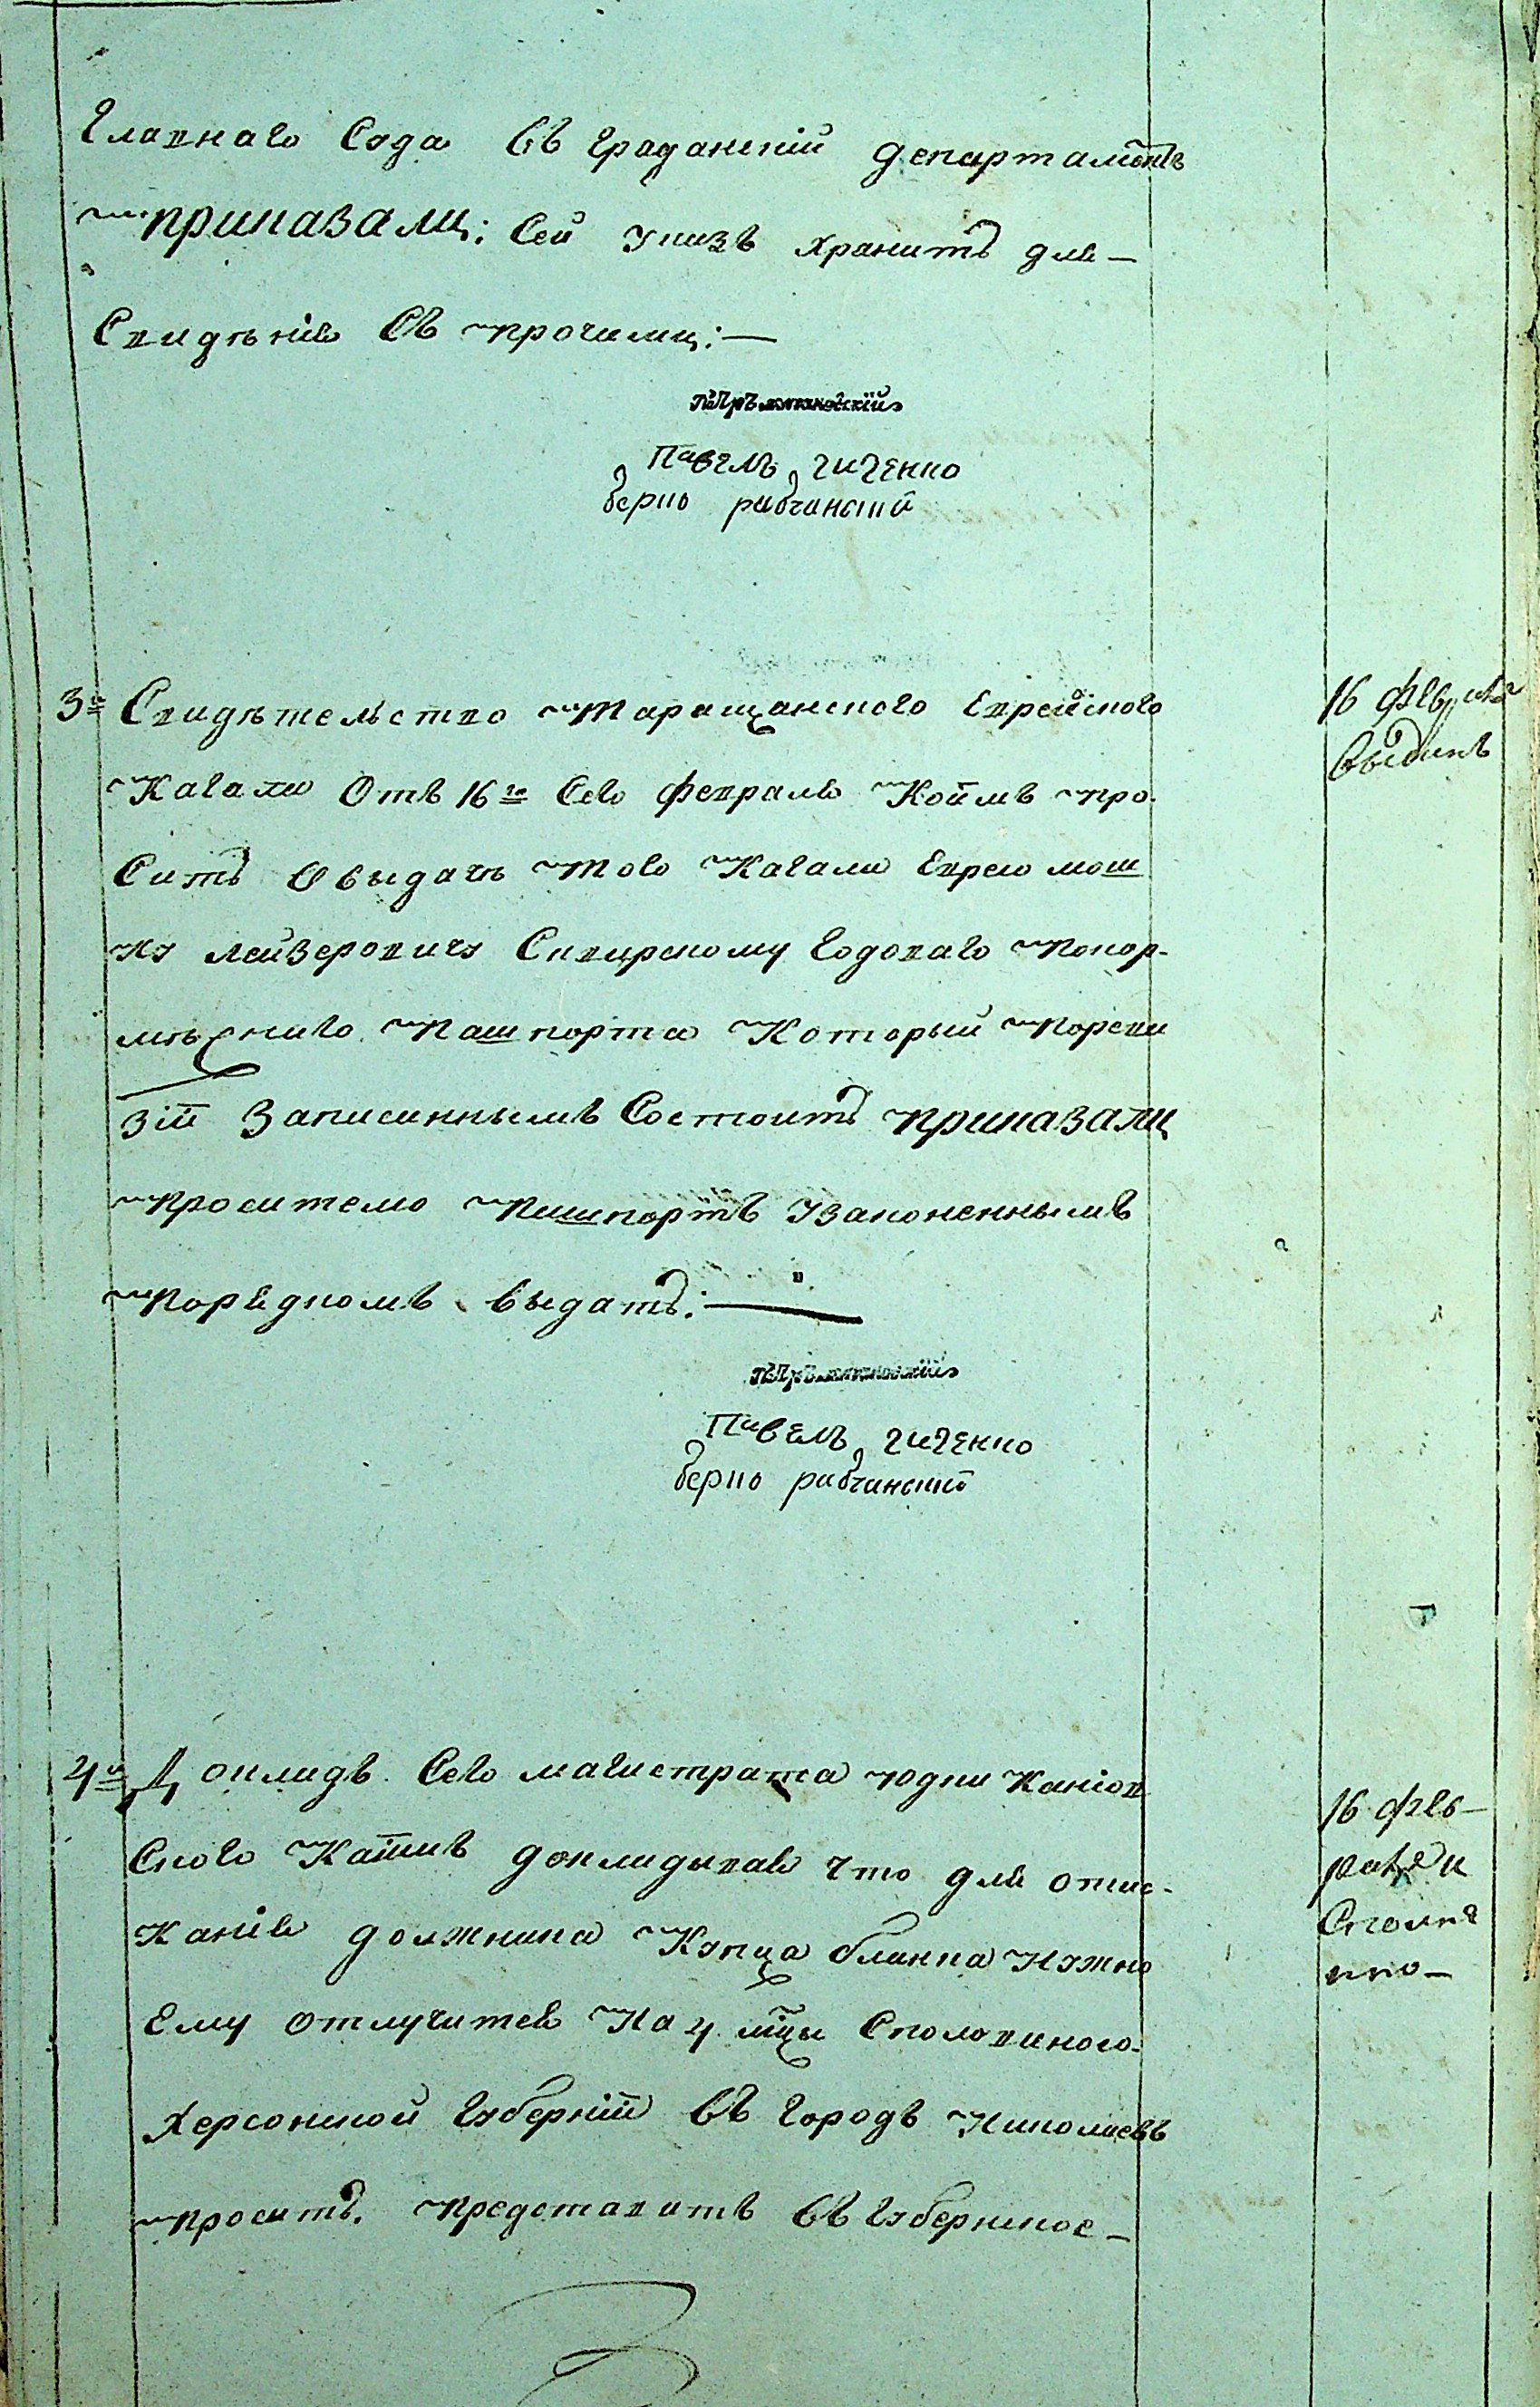 Главнаго Суда въ гражданскій департаментъ
приказали: Сей указъ хранить для —
Свидѣнія Съ прочими: —
Павелъ гиченко
берко рабчинский
3й Свидѣтельство таращанского Еврейского
Кагала Отъ 16го Сего февраля Коймъ про
Ситъ О выдачѣ того Кагала Еврею мош
ку лейзеровичу Сквирскому годоваго покор-
мѣжниго пашпорта Который поревы
зій Записаннымъ Состоитъ приказали
просителю пашпортъ узаконеннымъ
порядкомъ выдать: —
16 февраля
выданъ
Павелъ гиченко
берко рабчинский
4й Докладъ Сего магистрата юдки Каніов
Ского Катинъ докладывая что для отис-
Канія должника Купца бланка нужно
Ему отлучится На 4 мцы Споловиною
Херсонской губерній въ городъ Николаевъ
проситъ. представить въ губернское —
16 фев-
раля и
Сполне
нно —